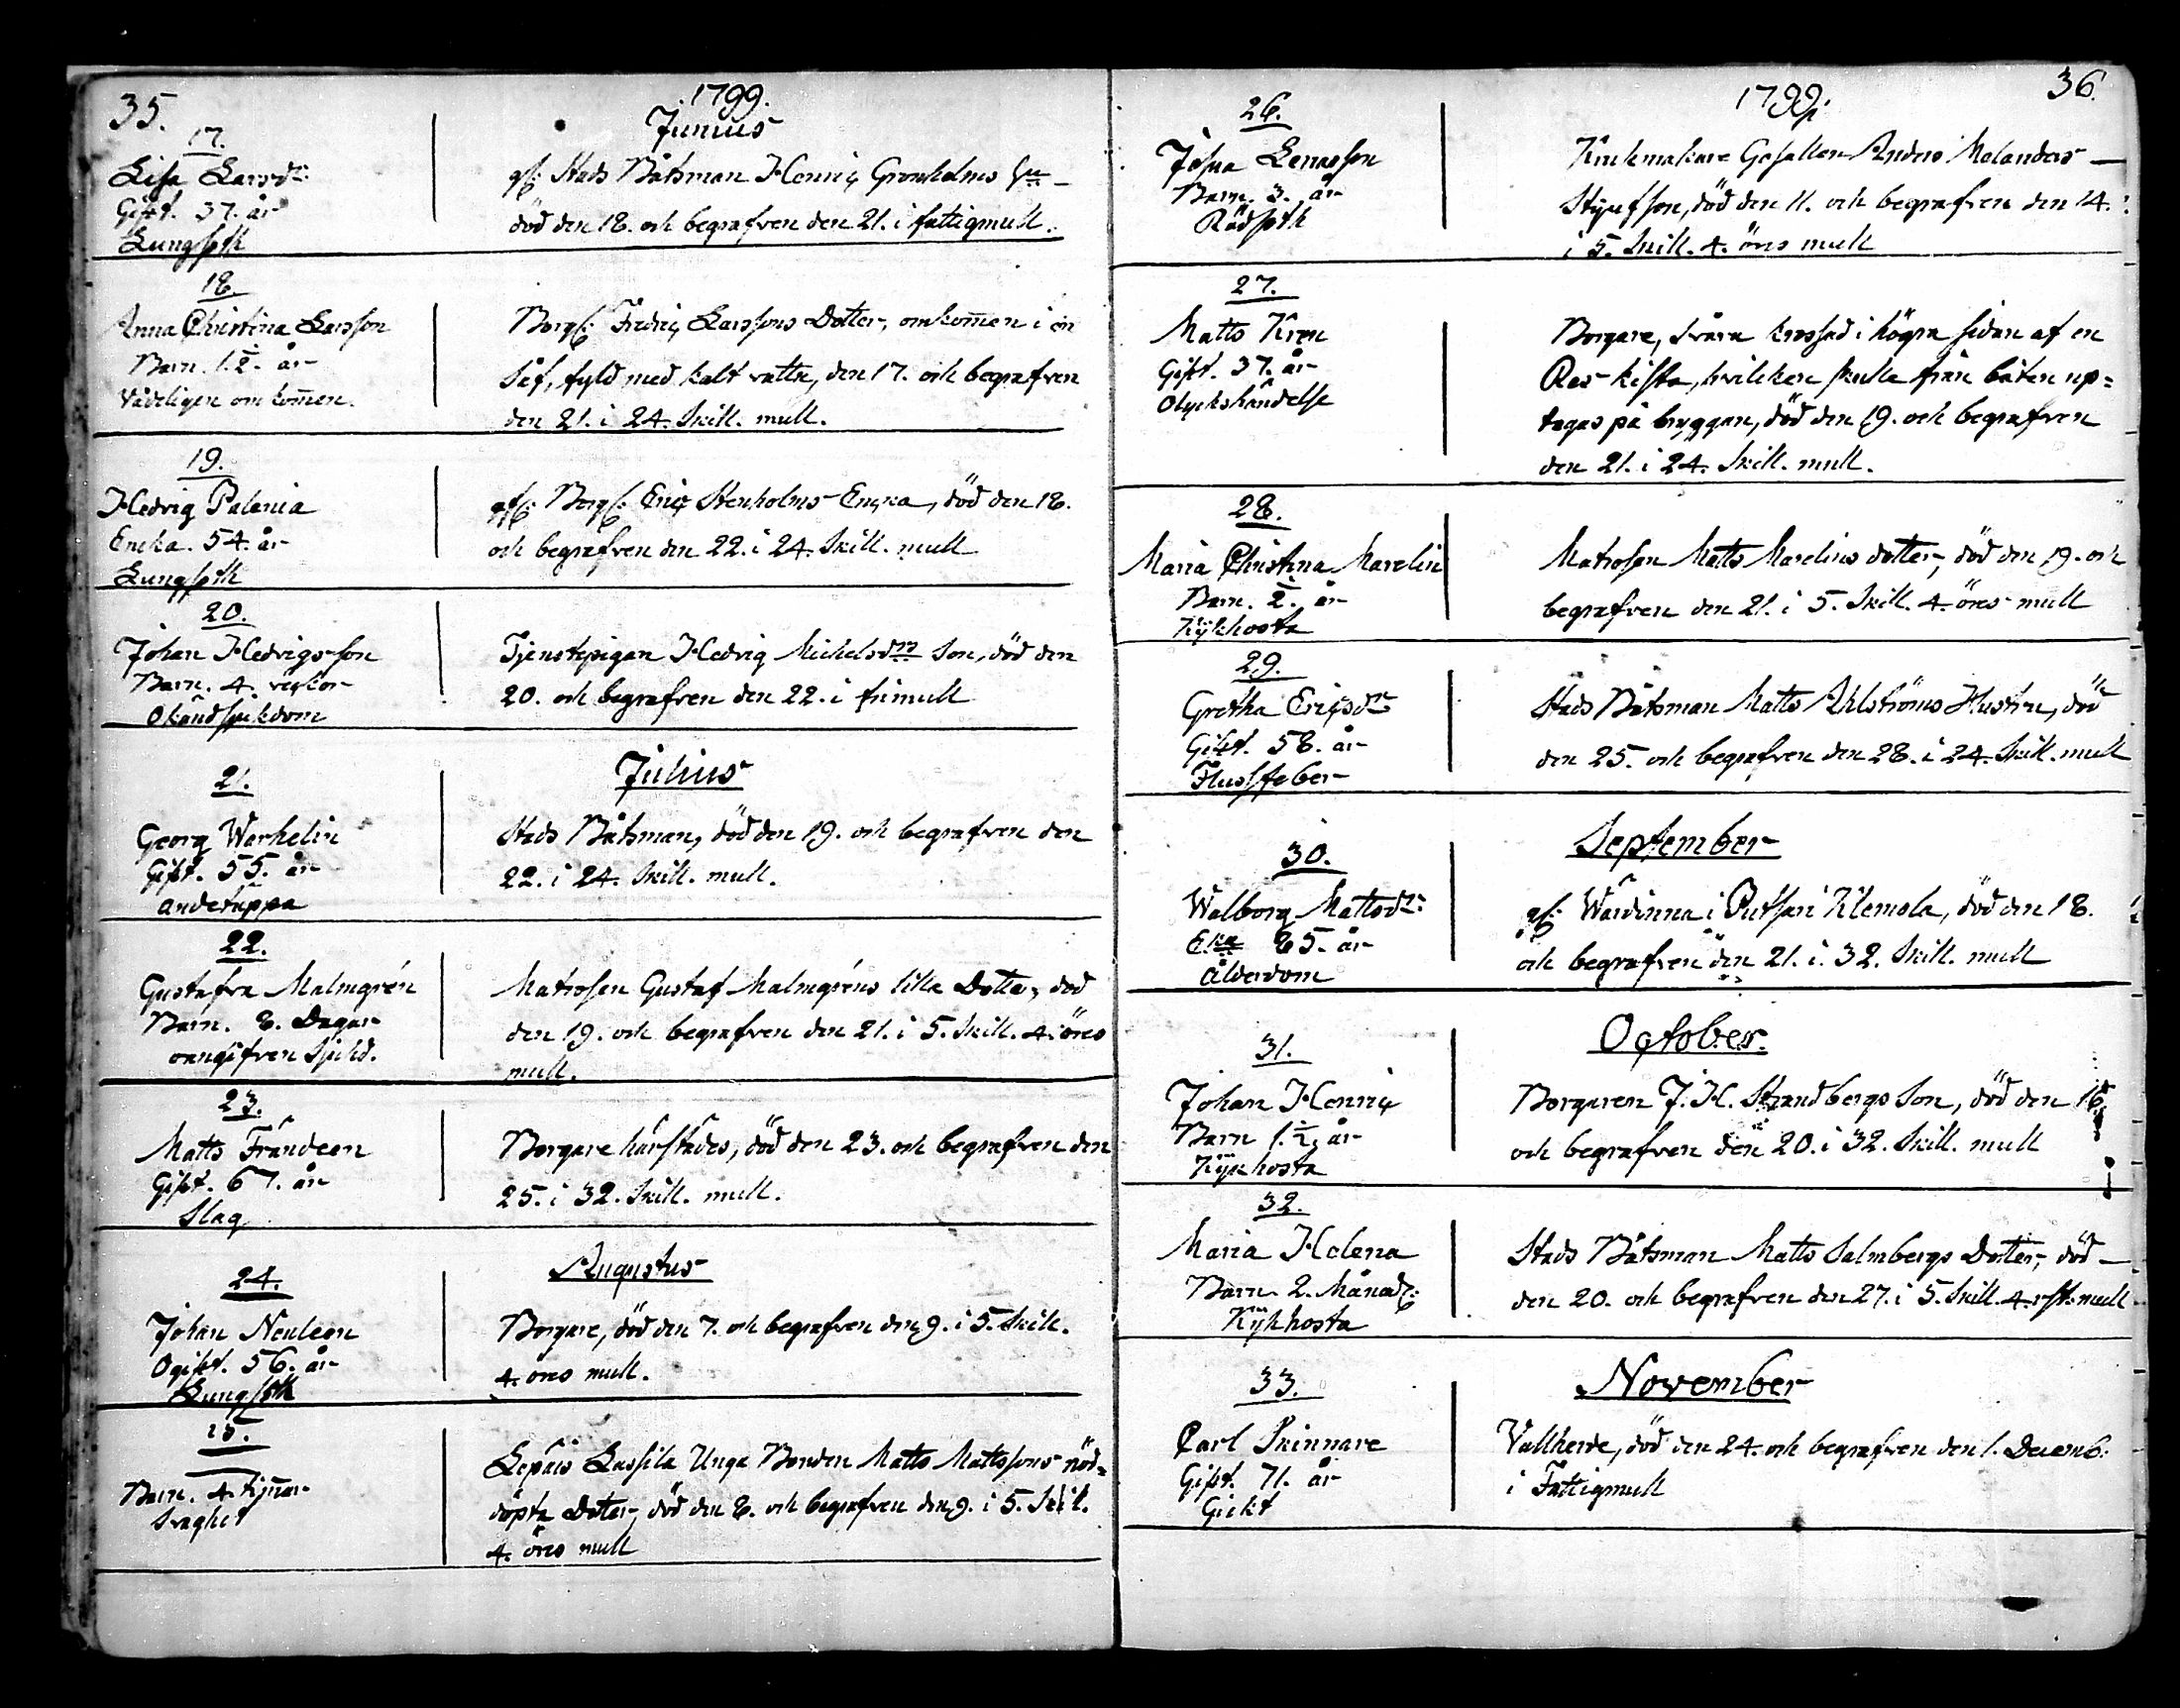 35.
1799.
Junius
17.
Lisa Larsdr:
Gift. 37. år
Lungsoth
gf: Stads Båtsman Henric Gronholms hu
död den 18. och begrafven den 21. i fattigmull.
18.
Anna Christina Larsson
Barn. 1 1/2. år
Vådeligen omkommen.
Borgs: Fredric Larssons Dotter, omkommen i en
Såf, fyld med kalt vattn, den 17. och begrafven
den 21. i 24. Skill. mull.
19.
Hedvig Palenia
Encka. 54. år
Lungsoth
Borgs: Eric Stenholms Encka, död den 18.
och begrafven den 22. i 24. Skill. mull
20.
Johan Hedvigsson
Barn. 4. veckor
Okändsjukdom
Tjenstepigan Hedvig Michelsdrs Son, död den
20. och begrafven den 22. i frimull
Julius
21.
Georg Warhelin
Gift. 55. år
andetäppa
Stads Båtsman, död den 19. och begrafven den
22. i 24. Skill. mull.
22.
Gustafva Malmgrén
Barn. 8. Dagar
oangifven Sjukd.
Matrosen Gustaf Malmgréns lilla Dotter, död
den 19. och begrafven den 21. i 5. Skill. 4. öres
mull.
23.
Matts Frändeen
Gift. 67. år
Slag
Borgare härstädes, död den 23. och begrafven den
25. i 32. Skill. mull.
Augustus
24.
Johan Neuleen
Ogift. 56. år
Lungsoth
Borgare, död den 7. och begrafven den 9. i 5. Skill.
4. öres mull.
25.
Barn. 4. tijmar
Svaghet
Lepäis Lassila Unga Bonden Matts Mattssons nöd=
döpta Doter, död den 8. och begrafven den 9. i 5. Skil.
4. öres mull
36.
1799.
26.
Josua Lenasson
Barn. 3. år
Rödsoth
Krukmakare Gesällen Anders Melanders
Styufson, död den 11. och begrafven den 14.
i 5. Skill. 4. öres mull
27.
Matts Kren
Gift. 37. år
Olyckshändelse
Borgare, svåra krossad i högra sidan af en
Res kista, hvilcken skulle från båten up=
tagas på bryggan, död den 19. och begrafven
den 21. i 24. Skill. mull.
28.
Maria Christina Marelin
Barn. 1/2. år
Kijkhosta
Matrosen Matts Marelins dotter, död den 19. och
begrafven den 21. i 5. Skill. 4. öres mull
29.
Gretha Ericsdr
Gift. 58. år
Flussfeber
Stads Båtsman Matts Ahlströms Hustru, död
den 25. och begrafven den 28. i 24. Skill. mull
September
30.
Walborg Mattsdr:
Eka 85. år
Ålderdom
gf: Wärdinna i Putsari Klemola, död den 18.
och begrafven den 21. i 32. Skill. mull
October.
31.
Johan Henric
Barn 1 1/2, år
Kijkhosta
Borgaren J. H. Strandbergs Son, död den 16
och begrafven den 20. i 32. Skill. mull
32.
Maria Helena
Barn 2. Månad:
Kijkhosta
Stads Båtsman Matts Salmbergs Dotter, död
den 20. och begrafven den 27. i 5. Skill. 4. rst. mull
November
33.
Carl Skinnare
Gift. 71. år
Gickt
Vallherde, död den 24. och begrafven den 1. Decemb.
i Fattigmull